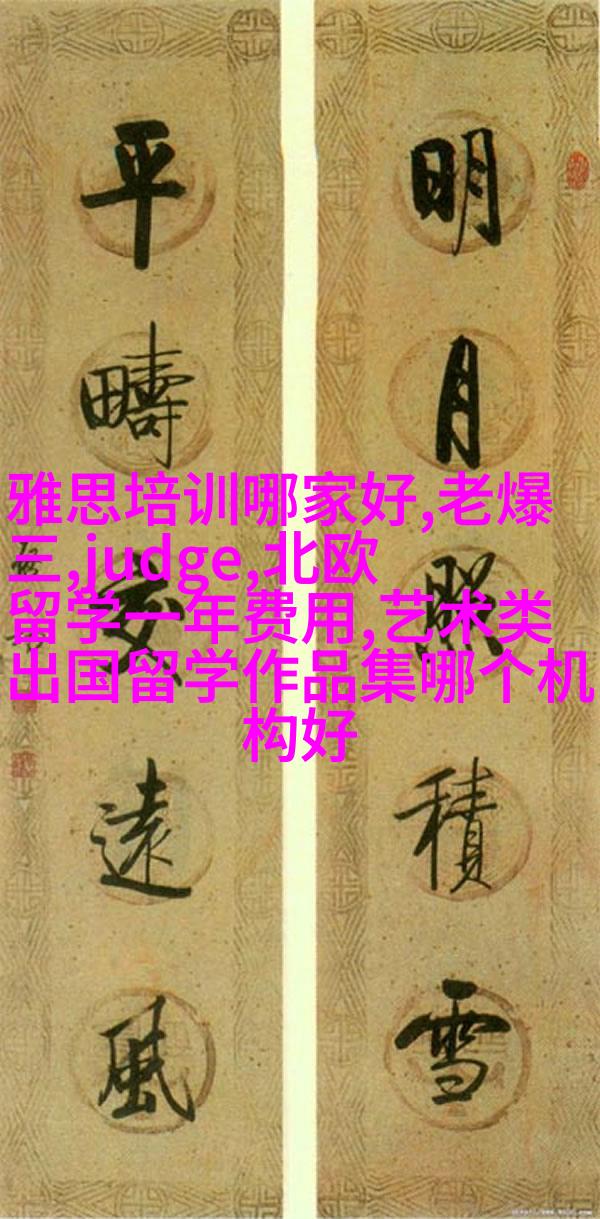 明月照積雪
平疇交遠風
雅思培训哪家好,老爆
三,judge,北欧
留学一年费用,艺术类
出国留学作品集哪个机
构好